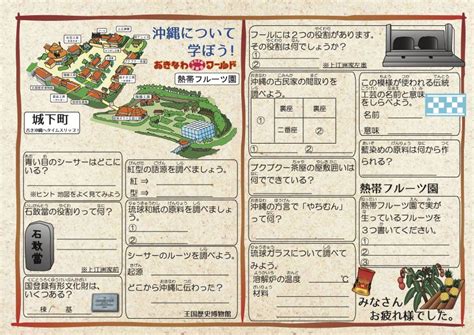 沖縄について
学ぼう！
おきなわワールド
熱帯フルーツ園
城下町
古き沖縄へタイムスリップ！
青い目のシーサーはどこにいる？
※ヒント 地図をよく見てみよう
石敢當の役割りって何？
石敢當
※上江洲家前
国登録有形文化財は、
いくつある？
棟
基
紅型の語源を調べましょう。
紅
型
琉球和紙の原料を調べましょう。
シーサーのルーツを調べよう。
起源
どこから沖縄に伝わった？
王国歴史博物館
フールには２つの役割があります、
その役割は何でしょうか？
①
②
※上江洲家左裏
沖縄の古民家の間取りを
調べよう。
裏座
裏座
二番座
ブクブクー茶屋の屋敷囲いは
何でできている？
沖縄の方言で「やちむん」って何？
琉球ガラスについて調べて
みよう。
溶解炉の温度
℃
材料
この模様が使われる伝統
工芸の名前と意味
をしらべよう。
名前
意味
藍染めの原料は何から作
られる？
熱帯フルーツ園
熱帯フルーツ園で実が
生っているフルーツを
３つ書いてください。
①
②
③
みなさん
お疲れ様でした。